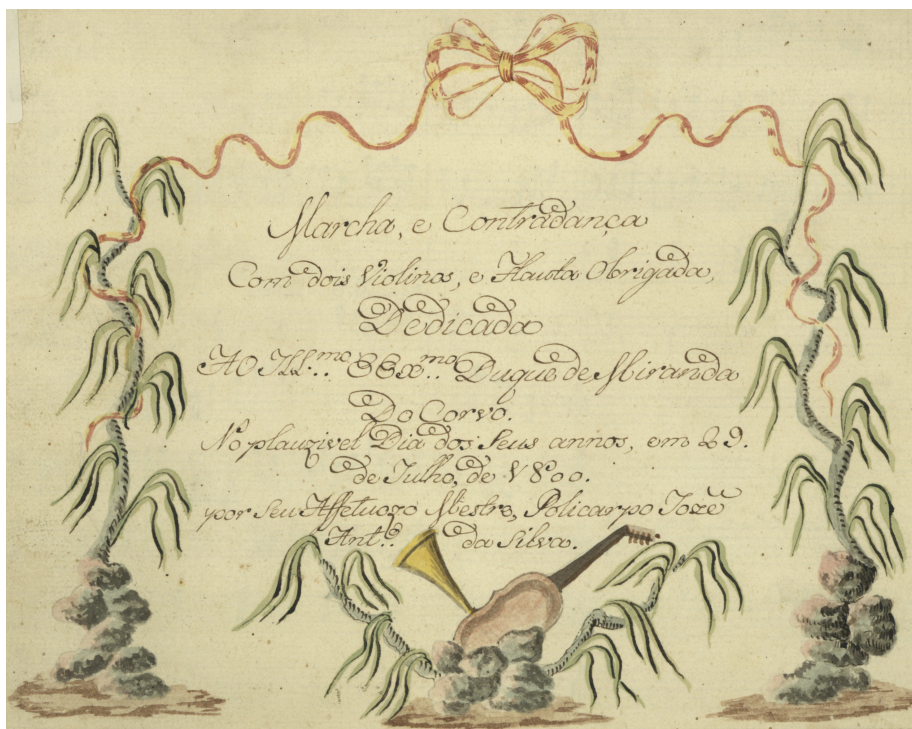 Marcha, e Contradança
Com dois Violinos, e Flauta Obrigada,
Dedicada
AO Ill.mo EExmo Duque de Miranda
Do Corvo.
No plauzivel Dia dos Seus annos, em 29.
de Julho, de 1800.
por Seu Affetuozo Mestre, Policarpo Jozé
Ant.o da Silva.